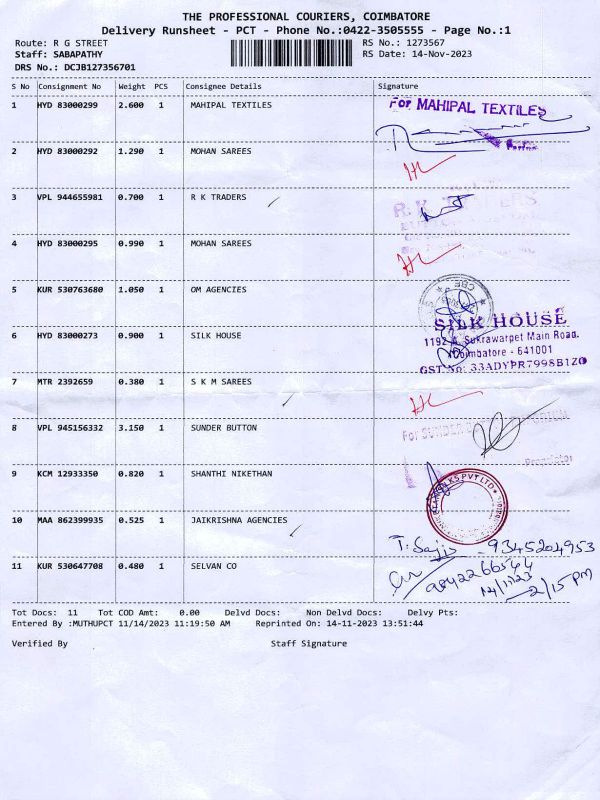 THE PROFESSIONAL COURIERS, COIMBATORE
Delivery Runsheet - PCT - Phone No.:0422-3505555 - Page No.:1
Route: R G STREET RS No.: 1273567
Staff: SABAPATHY RS Date: 14-Nov-2023
DRS No.: DCJB127356701
S No Consignment No Weight PCS Consignee Details Signature
1 HYD 83000299 2.600 1 MAHIPAL TEXTILES For MAHIPAL TEXTILES
2 HYD 83000292 1.290 1 MOHAN SAREES
3 VPL 944655981 0.700 1 R K TRADERS
4 HYD 83000295 0.990 1 MOHAN SAREES
5 KUR 530763680 1.050 1 OM AGENCIES
SILK HOUSE
6 HYD 83000273 0.900 1 SILK HOUSE 1192 A, Sukrawarpet Main Road,
Coimbatore - 641001
GST No: 33ADYPR7998B1ZO
7 MTR 2392659 0.380 1 S K M SAREES
8 VPL 945156332 3.150 1 SUNDER BUTTON For SUNDER
Proprietor
9 KCM 12933350 0.820 1 SHANTHI NIKETHAN
10 MAA 862399935 0.525 1 JAIKRISHNA AGENCIES
T. Sajis 9345204953
11 KUR 530647708 0.480 1 SELVAN CO 9842266544
14/11/23 2/15 PM
Tot Docs: 11 Tot COD Amt: 0.00 Delvd Docs: Non Delvd Docs: Delvy Pts:
Entered By :MUTHUPCT 11/14/2023 11:19:50 AM Reprinted On: 14-11-2023 13:51:44
Verified By Staff Signature